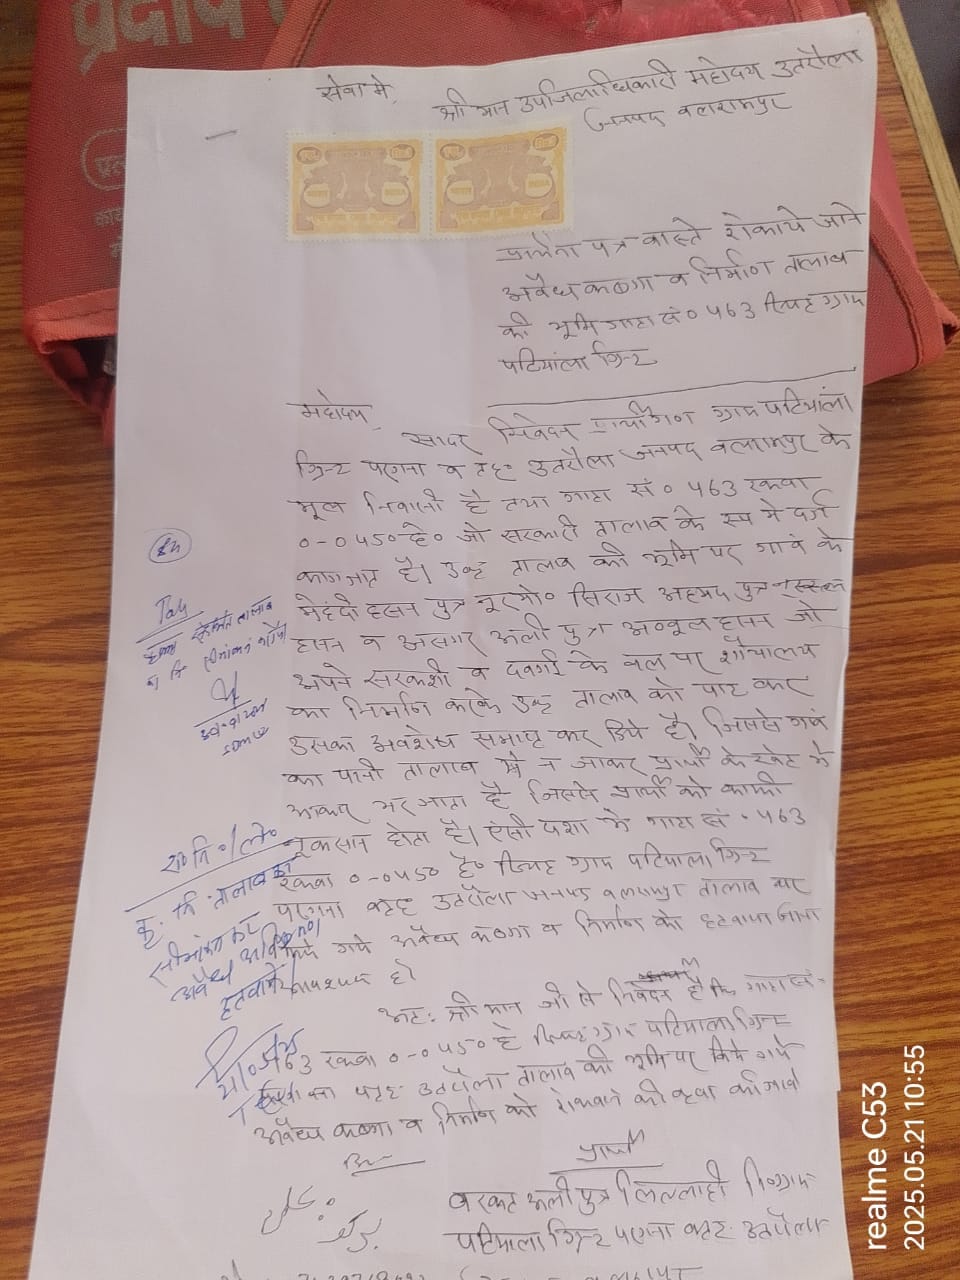 प्रदीप
सेवा मे,
श्री मान उपजिलाधिकारी महोदय उतरौला
जनपद बलरामपुर
प्रार्थना पत्र वास्ते रोकाये जाने
अवैध कब्जा व निर्माण तालाब
की भूमि गाटा सं० 463 स्थित ग्राम
पटियाला ग्रिन्ट
महोदय,
सादर निवेदन प्रार्थीगण ग्राम पटियाला
ग्रिन्ट परगना व तह: उतरौला जनपद बलरामपुर के
मूल निवासी है तथा गाटा सं० 463 रकवा
०-०450 हे० जो सरकारी तालाब के रूप मे दर्ज
कागजात है। उक्त तालाब की भूमि पर गांव के
मेहंदी हसन पुत्र नूरमो० सिराज अहमद पुत्र
हसन व असगर अली पुत्र अब्दुल हसन जो
अपने सरकशी व दबगई के बल पर शौचालय
का निर्माण करके उक्त तालाब को पाट कर
उसका अवशेष समाप्त कर दिये है। जिससे गांव
का पानी तालाब मे न जाकर प्रार्थी के खेत मे
आकर भर जाता है जिससे प्रार्थी को काफी
नुकसान होता है। ऐसी दशा मे गाटा सं० 463
रकवा ०-०450 हे० स्थित ग्राम पटियाला ग्रिन्ट
परगना व तह उतरौला जनपद बलरामपुर तालाब पर
किये गये अवैध कब्जा व निर्माण को हटवाया जाना
आवश्यक है।
अत: श्री मान जी से निवेदन है कि गाटा सं०
463 रकवा ०-०450 हे स्थित ग्राम पटियाला ग्रिन्ट
परगना व तह: उतरौला तालाब की भूमि पर किये गये
अवैध कब्जा व निर्माण को रोकवाने की कृपा की जावे
प्रार्थी
बरकत अली पुत्र लिल्लाही नि० ग्राम
पटियाला ग्रिन्ट परगना व तह: उतरौला
रा० नि०/ले०
कृ: नि तालाब का
सीमांकन कर
अवैध अतिक्रमण
हटवाये
realme C53
2025.05.21 10:55